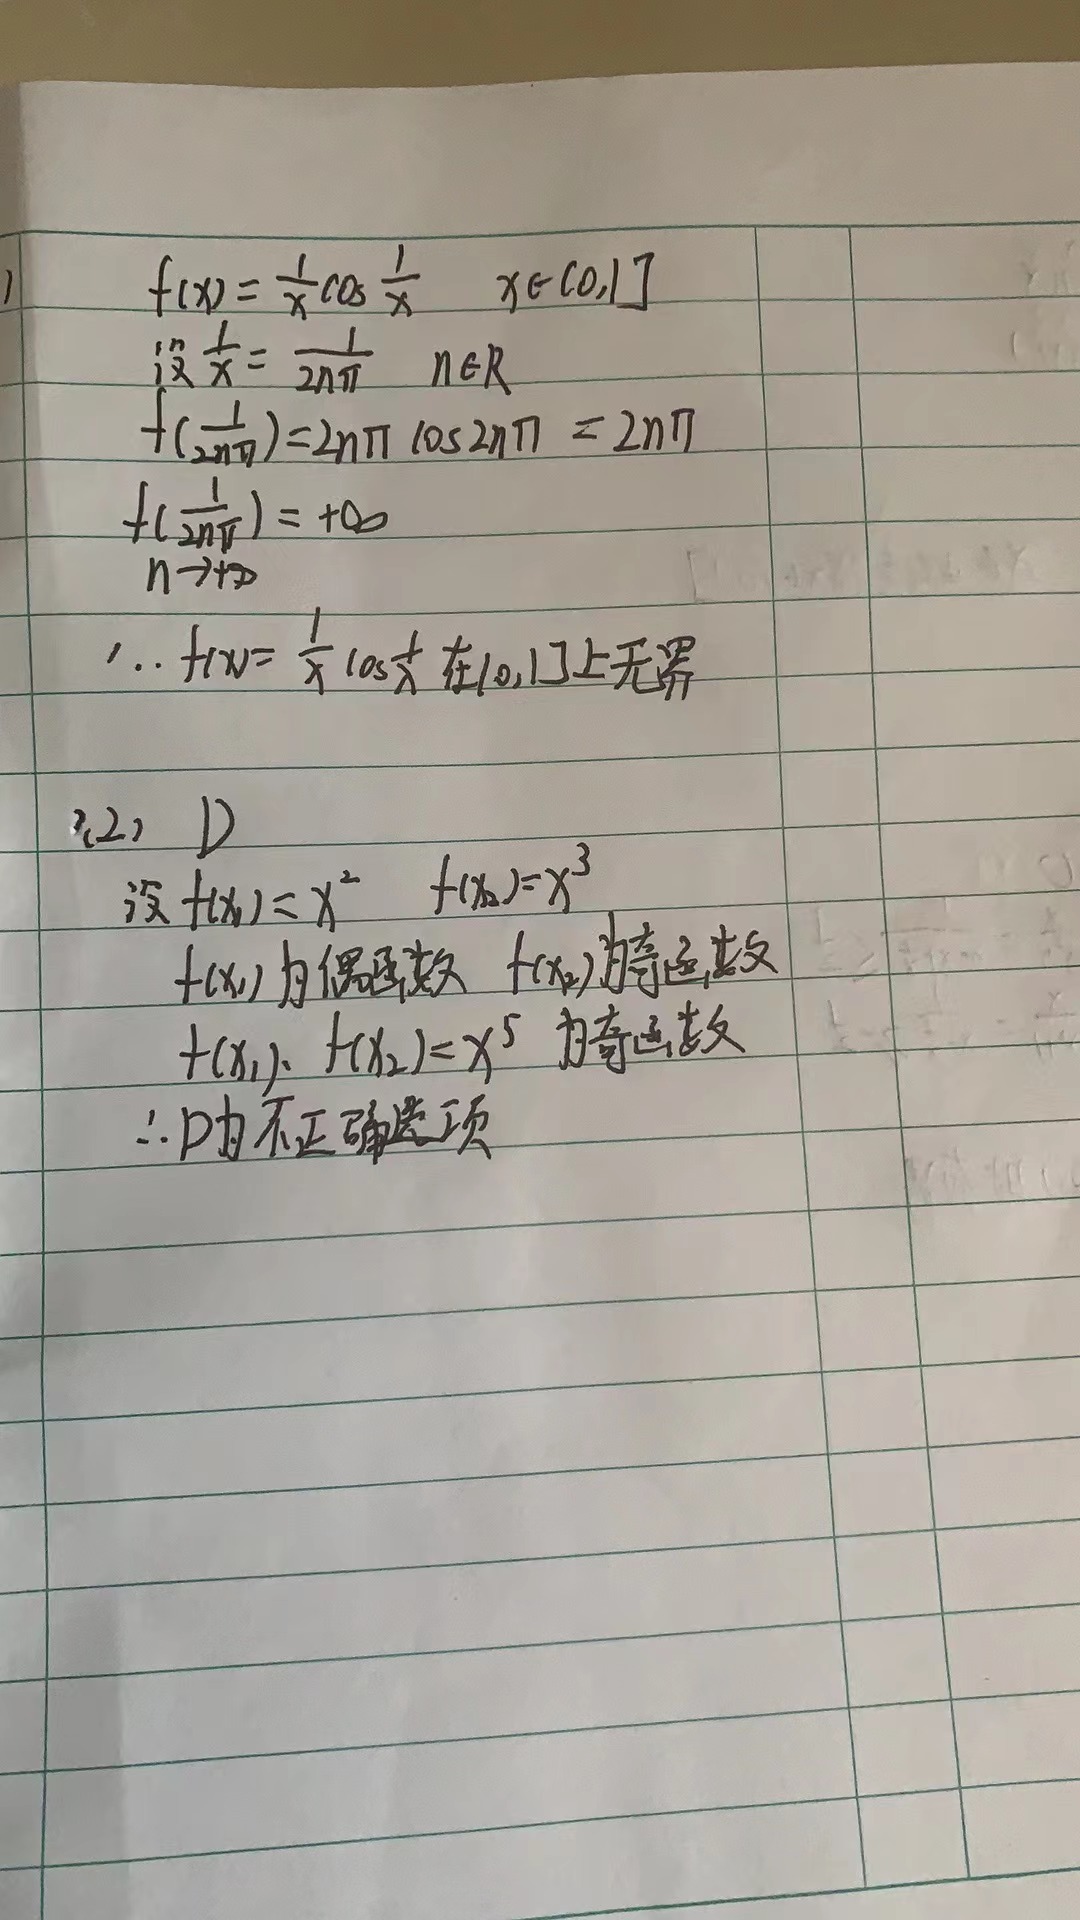 f(x)=1/x cos 1/x x∈(0,1]
设 1/x = 1/2nπ n∈R
f(1/2nπ)=2nπ cos2nπ = 2nπ
f(1/2nπ) = +∞
n→+∞
∴ f(x)= 1/x cos1/x 在(0,1]上无界
(2) D
设 f(x₁)=x² f(x₂)=x³
f(x₁)为偶函数 f(x₂)为奇函数
f(x₁)·f(x₂)=x⁵ 为奇函数
∴D为不正确选项